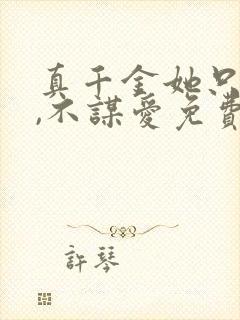 真千金她只
,不謀愛免費
許琴